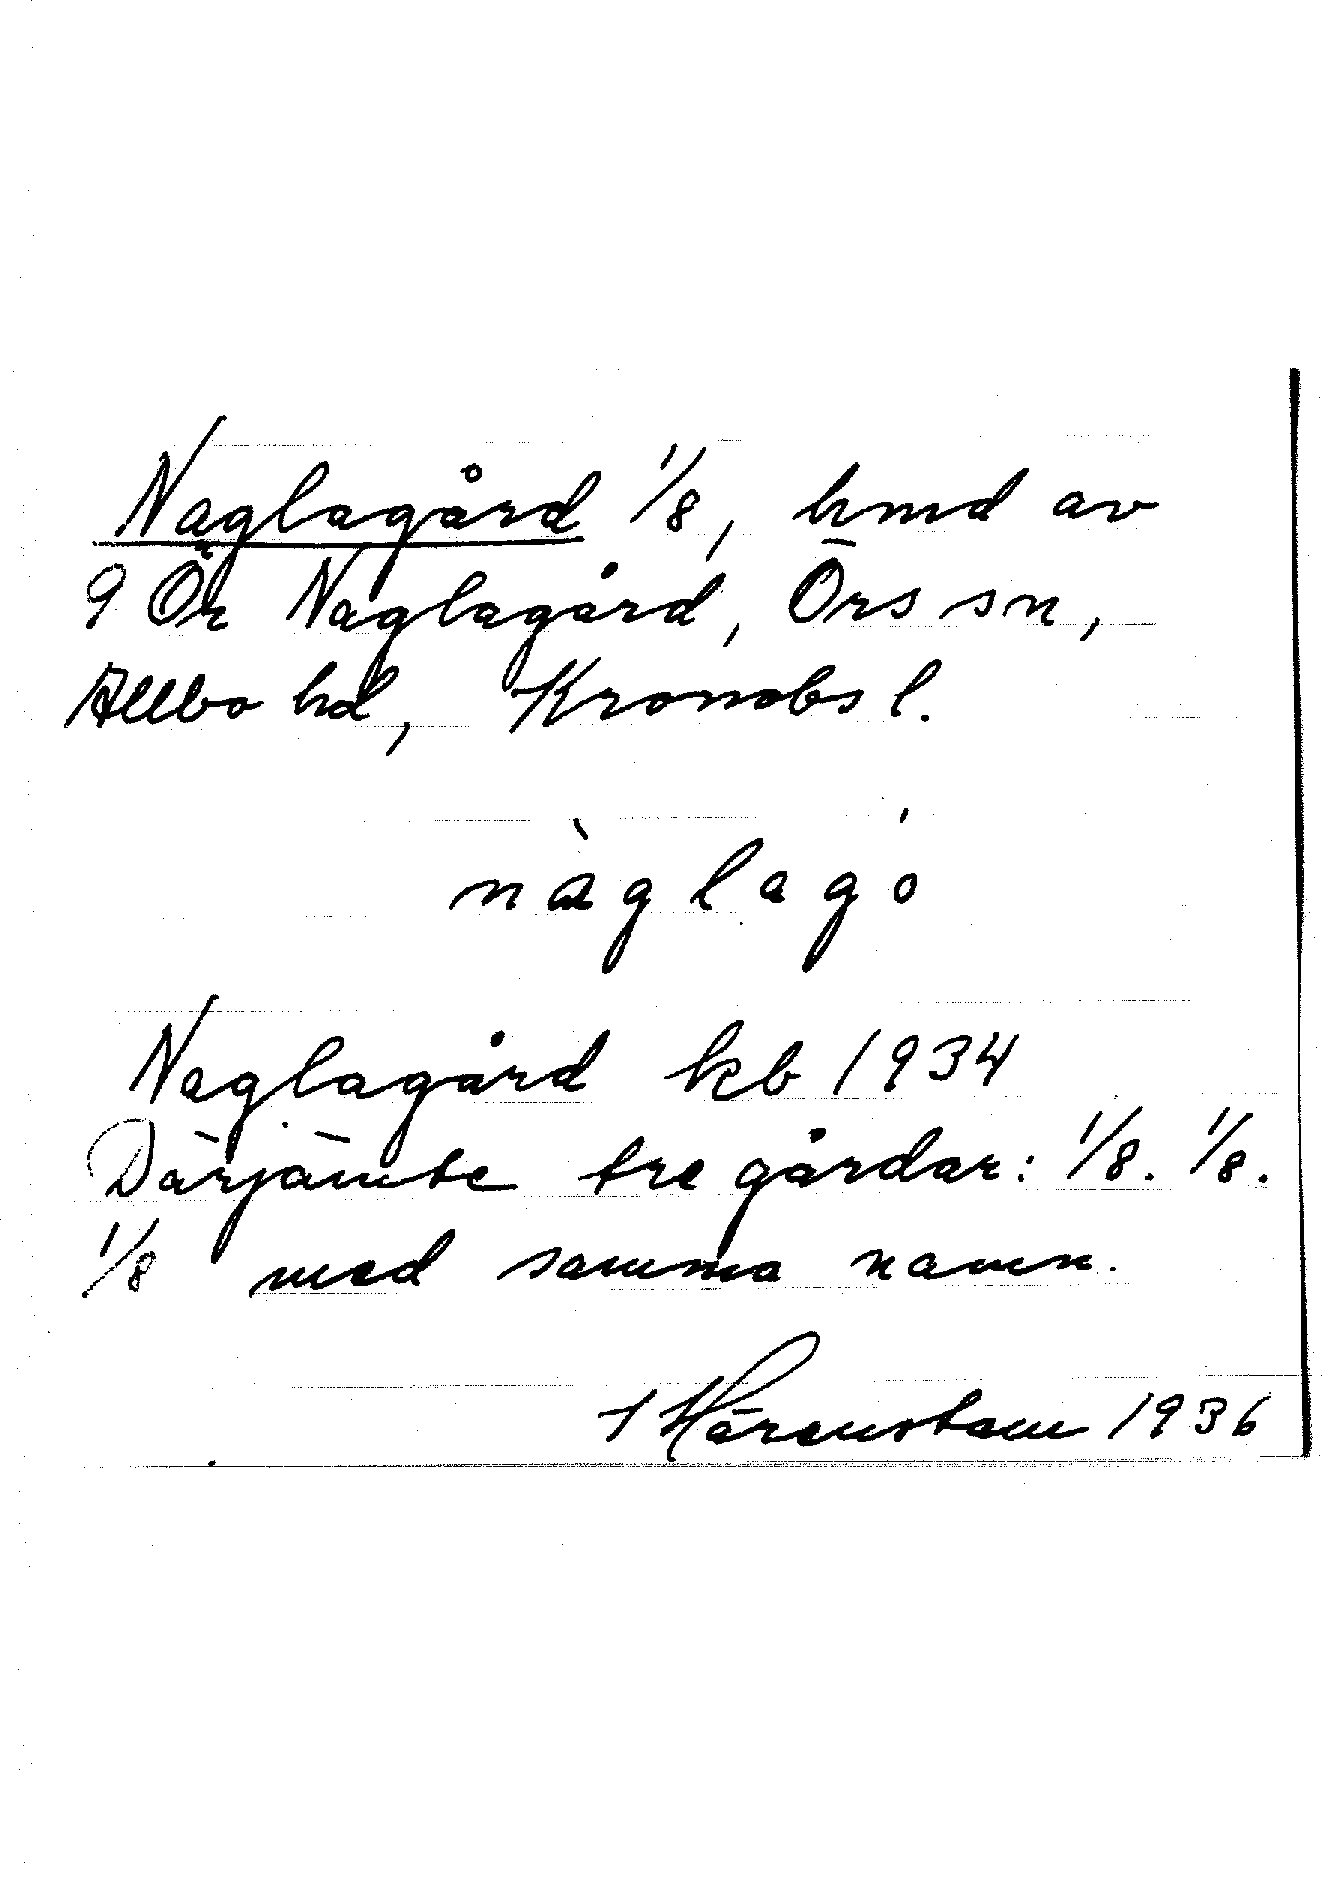 Naglagård 1/8, hmd av
9 Ör Naglagård, Örs sn,
Allbo hd, Kronobs l.
nàglagó
Naglagård kb 1934
Därjämte tre gårdar: 1/8. 1/8.
1/8 med samma namn.
Härenstam 1936